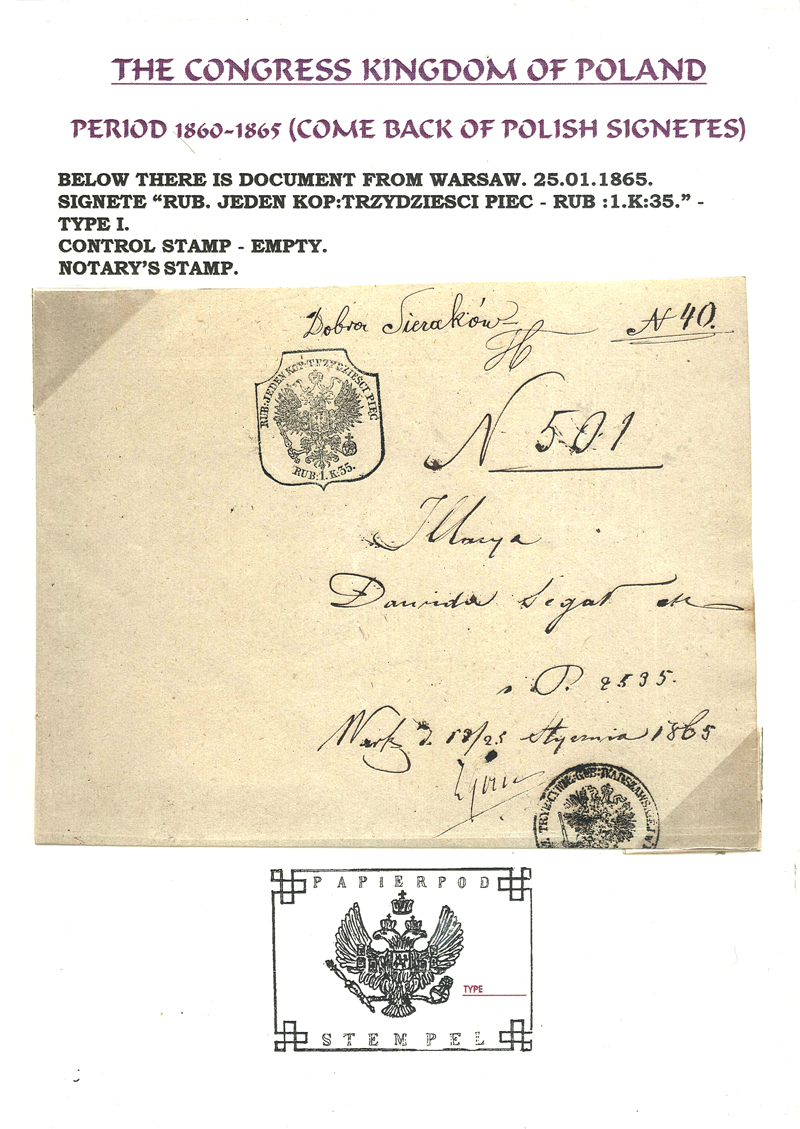 THE CONGRESS KINGDOM OF POLAND
PERIOD 1860-1865 (COME BACK OF POLISH SIGNETES)
BELOW THERE IS DOCUMENT FROM WARSAW. 25.01.1865.
SIGNETE “RUB. JEDEN KOP:TRZYDZIESCI PIEC - RUB :1.K:35.” -
TYPE I.
CONTROL STAMP - EMPTY.
NOTARY’S STAMP.
Dobra Sieraków
N 40.
RUB:JEDEN KOP:TRZYDZIEŚCI PIĘC
RUB:1.K:35.
N 501
Dawida Segał
P. 2535.
13/25 Stycznia 1865
TRYB:CYW:GUB:WARSZAWSKIEJ W
PAPIER POD
TYPE
STEMPEL